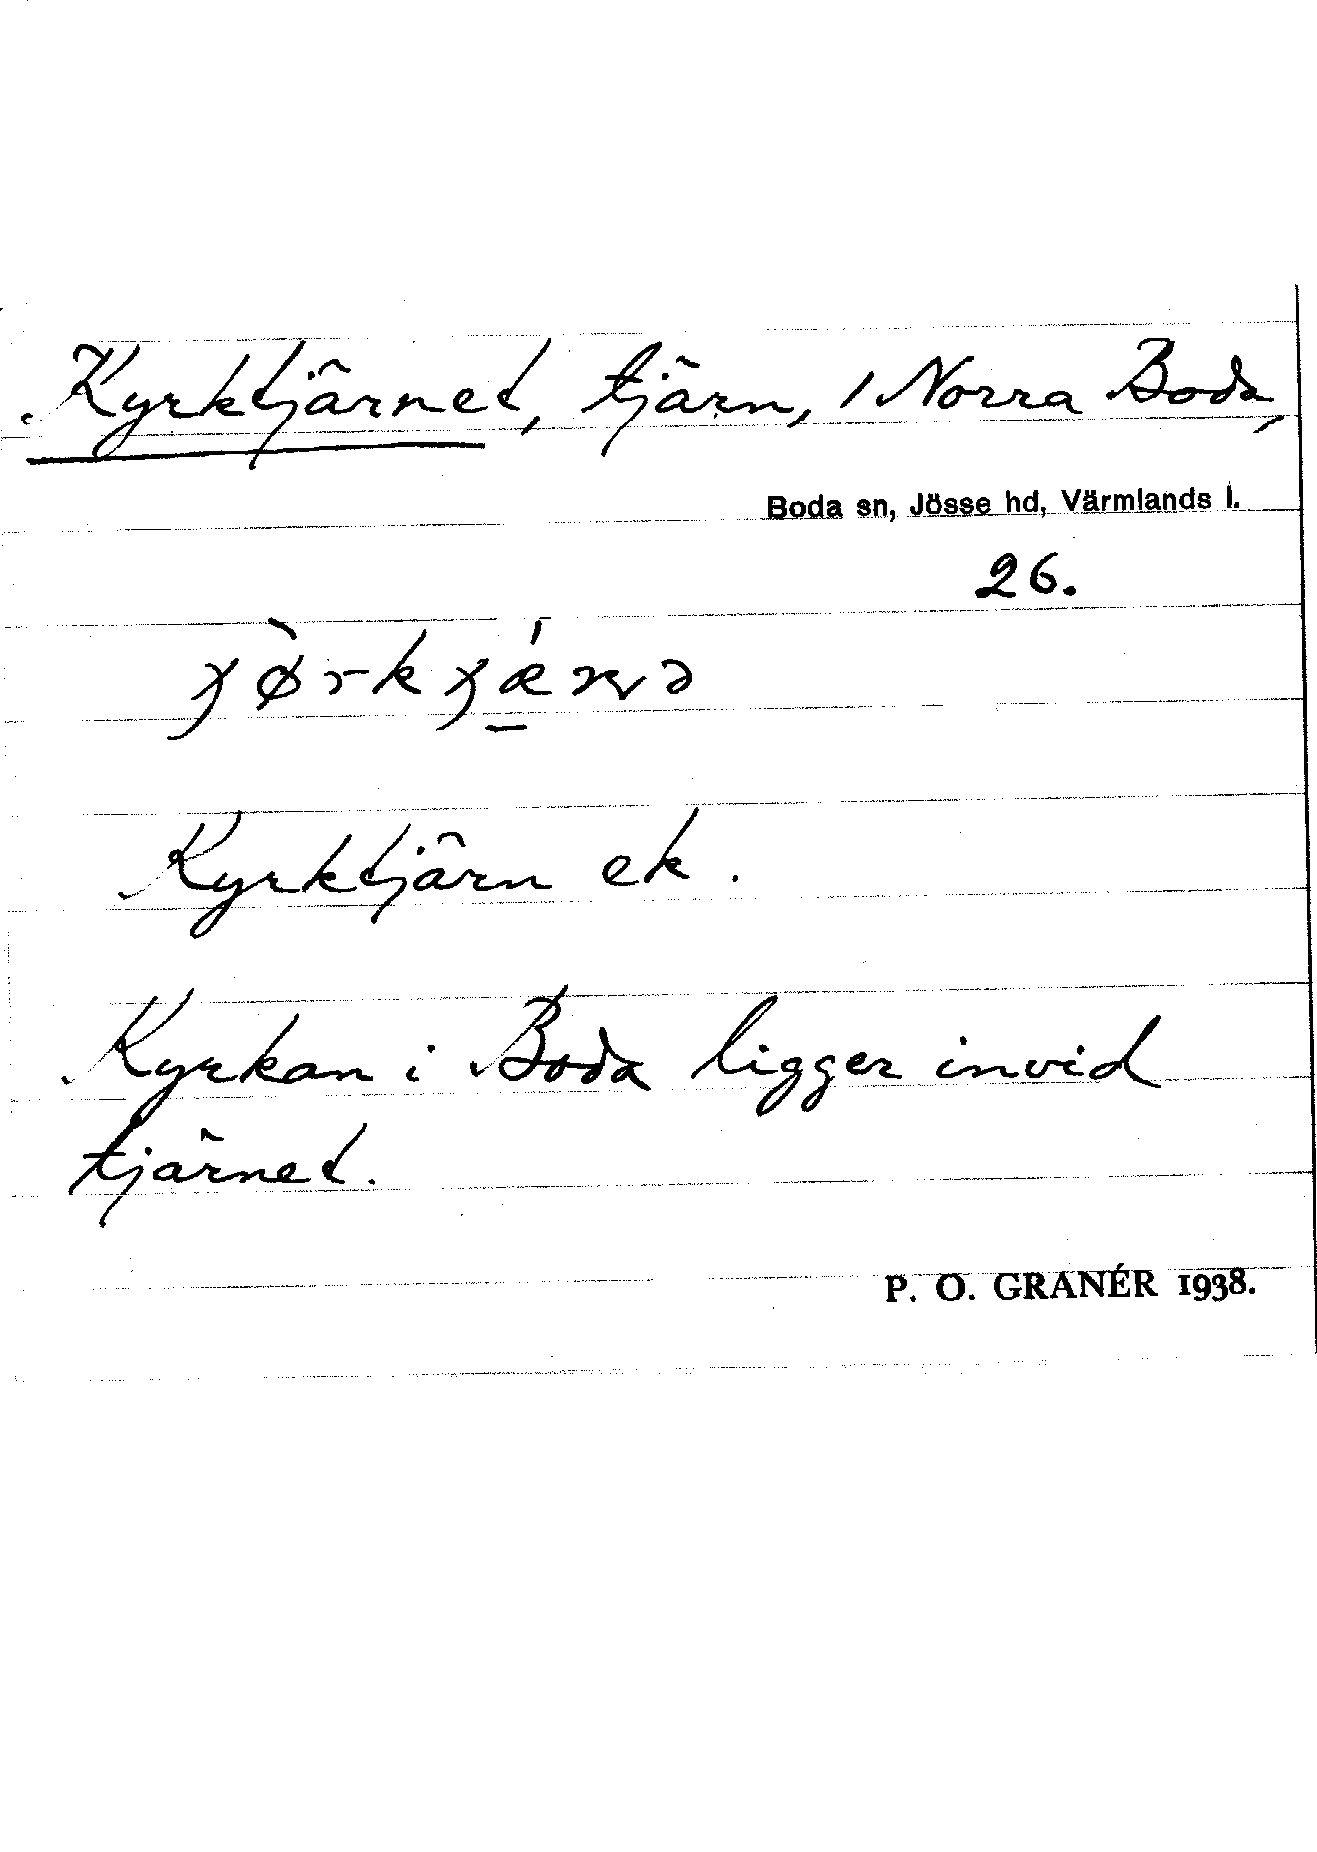 Kyrktjärnet, tjärn, 1 Norra Boda,
Boda sn, Jösse hd, Värmlands l.
26.
Kyrktjärn ek.
Kyrkan i Boda ligger invid
tjärnet.
P. O. GRANÉR 1938.